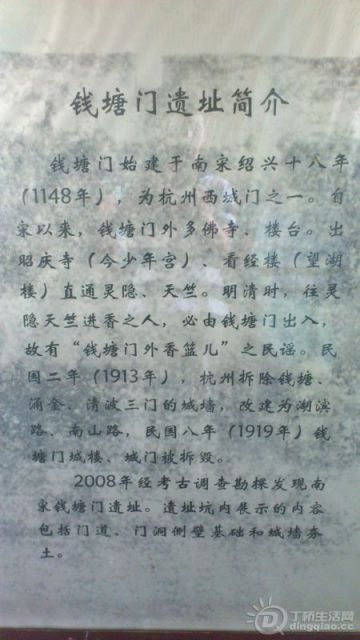 钱塘门遗址简介
钱塘门始建于南宋绍兴十八年
(1148年)，为杭州西城门之一。自
宋以来，钱塘门外多佛寺、楼台。出
昭庆寺（今少年宫）、看经楼（望湖
楼）直通灵隐、天竺。明清时，往灵
隐天竺进香之人，必由钱塘门出入，
故有“钱塘门外香篮儿”之民谣。民
国二年（1913年），杭州拆除钱塘、
涌金、清波三门的城墙，改建为湖滨
路、南山路，民国八年（1919年）钱
塘门城楼、城门被拆毁。
2008年经考古调查勘探发现南
宋钱塘门遗址。遗址坑内展示的内容
包括门道、门洞侧壁基础和城墙夯
土。
丁桥生活网
dingqiao.cc